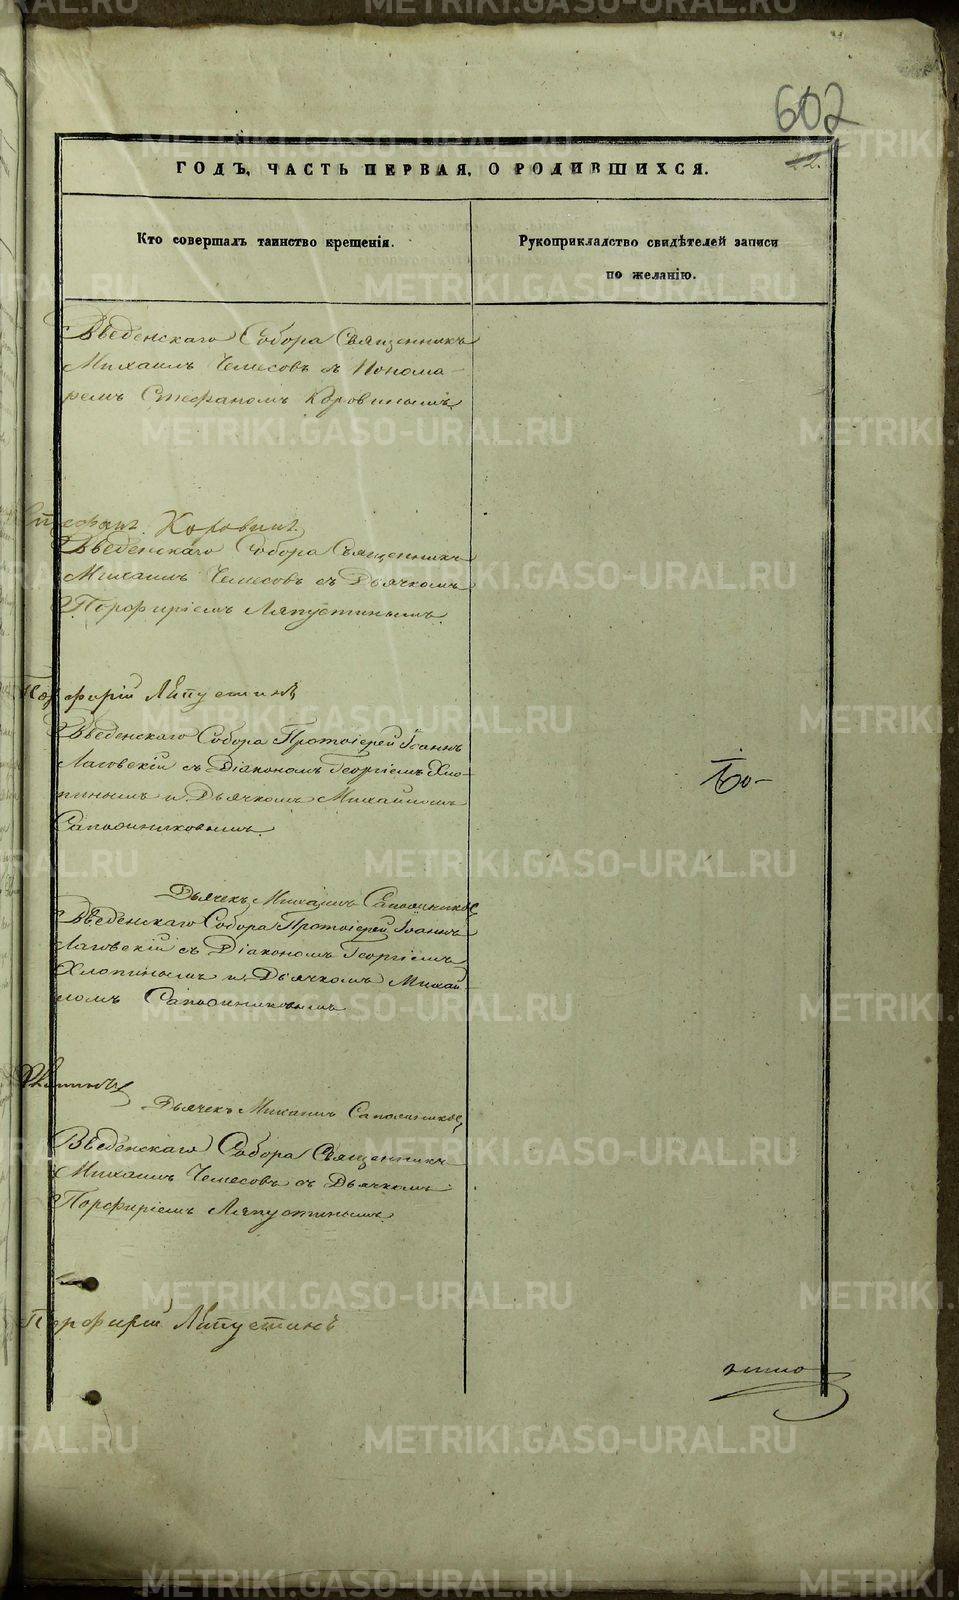 602
22.
ГОДЪ, ЧАСТЬ ПЕРВАЯ, О РОДИВШИХСЯ.
Кто совершалъ таинство крещенія.
Рукоприкладство свидѣтелей записи
по желанію.
Введенскаго Собора Священникъ
Михаилъ Чемесовъ съ Понома-
ремъ Стефаномъ Коровинымъ.
Стефанъ Коровинъ
Введенскаго Собора Священникъ
Михаилъ Чемесовъ съ Дьячкомъ
Порфиріемъ Ляпустинымъ.
Порфирій Ляпустинъ
Введенскаго Собора Протоіерей Іоаннъ
Лаговскій съ Діакономъ Георгіемъ Хло-
пинымъ и Дьячкомъ Михаиломъ
Сапожниковымъ.
Дьячекъ Михаилъ Сапожниковъ
Введенскаго Собора Протоіерей Іоаннъ
Лаговскій съ Діакономъ Георгіемъ
Хлопинымъ и Дьячкомъ Михаи-
ломъ Сапожниковымъ
Дьячекъ Михаилъ Сапожниковъ
Введенскаго Собора Священникъ
Михаилъ Чемесовъ съ Дьячкомъ
Порфиріемъ Ляпустинымъ.
Порфирій Ляпустинъ
METRIKI.GASO-URAL.RU